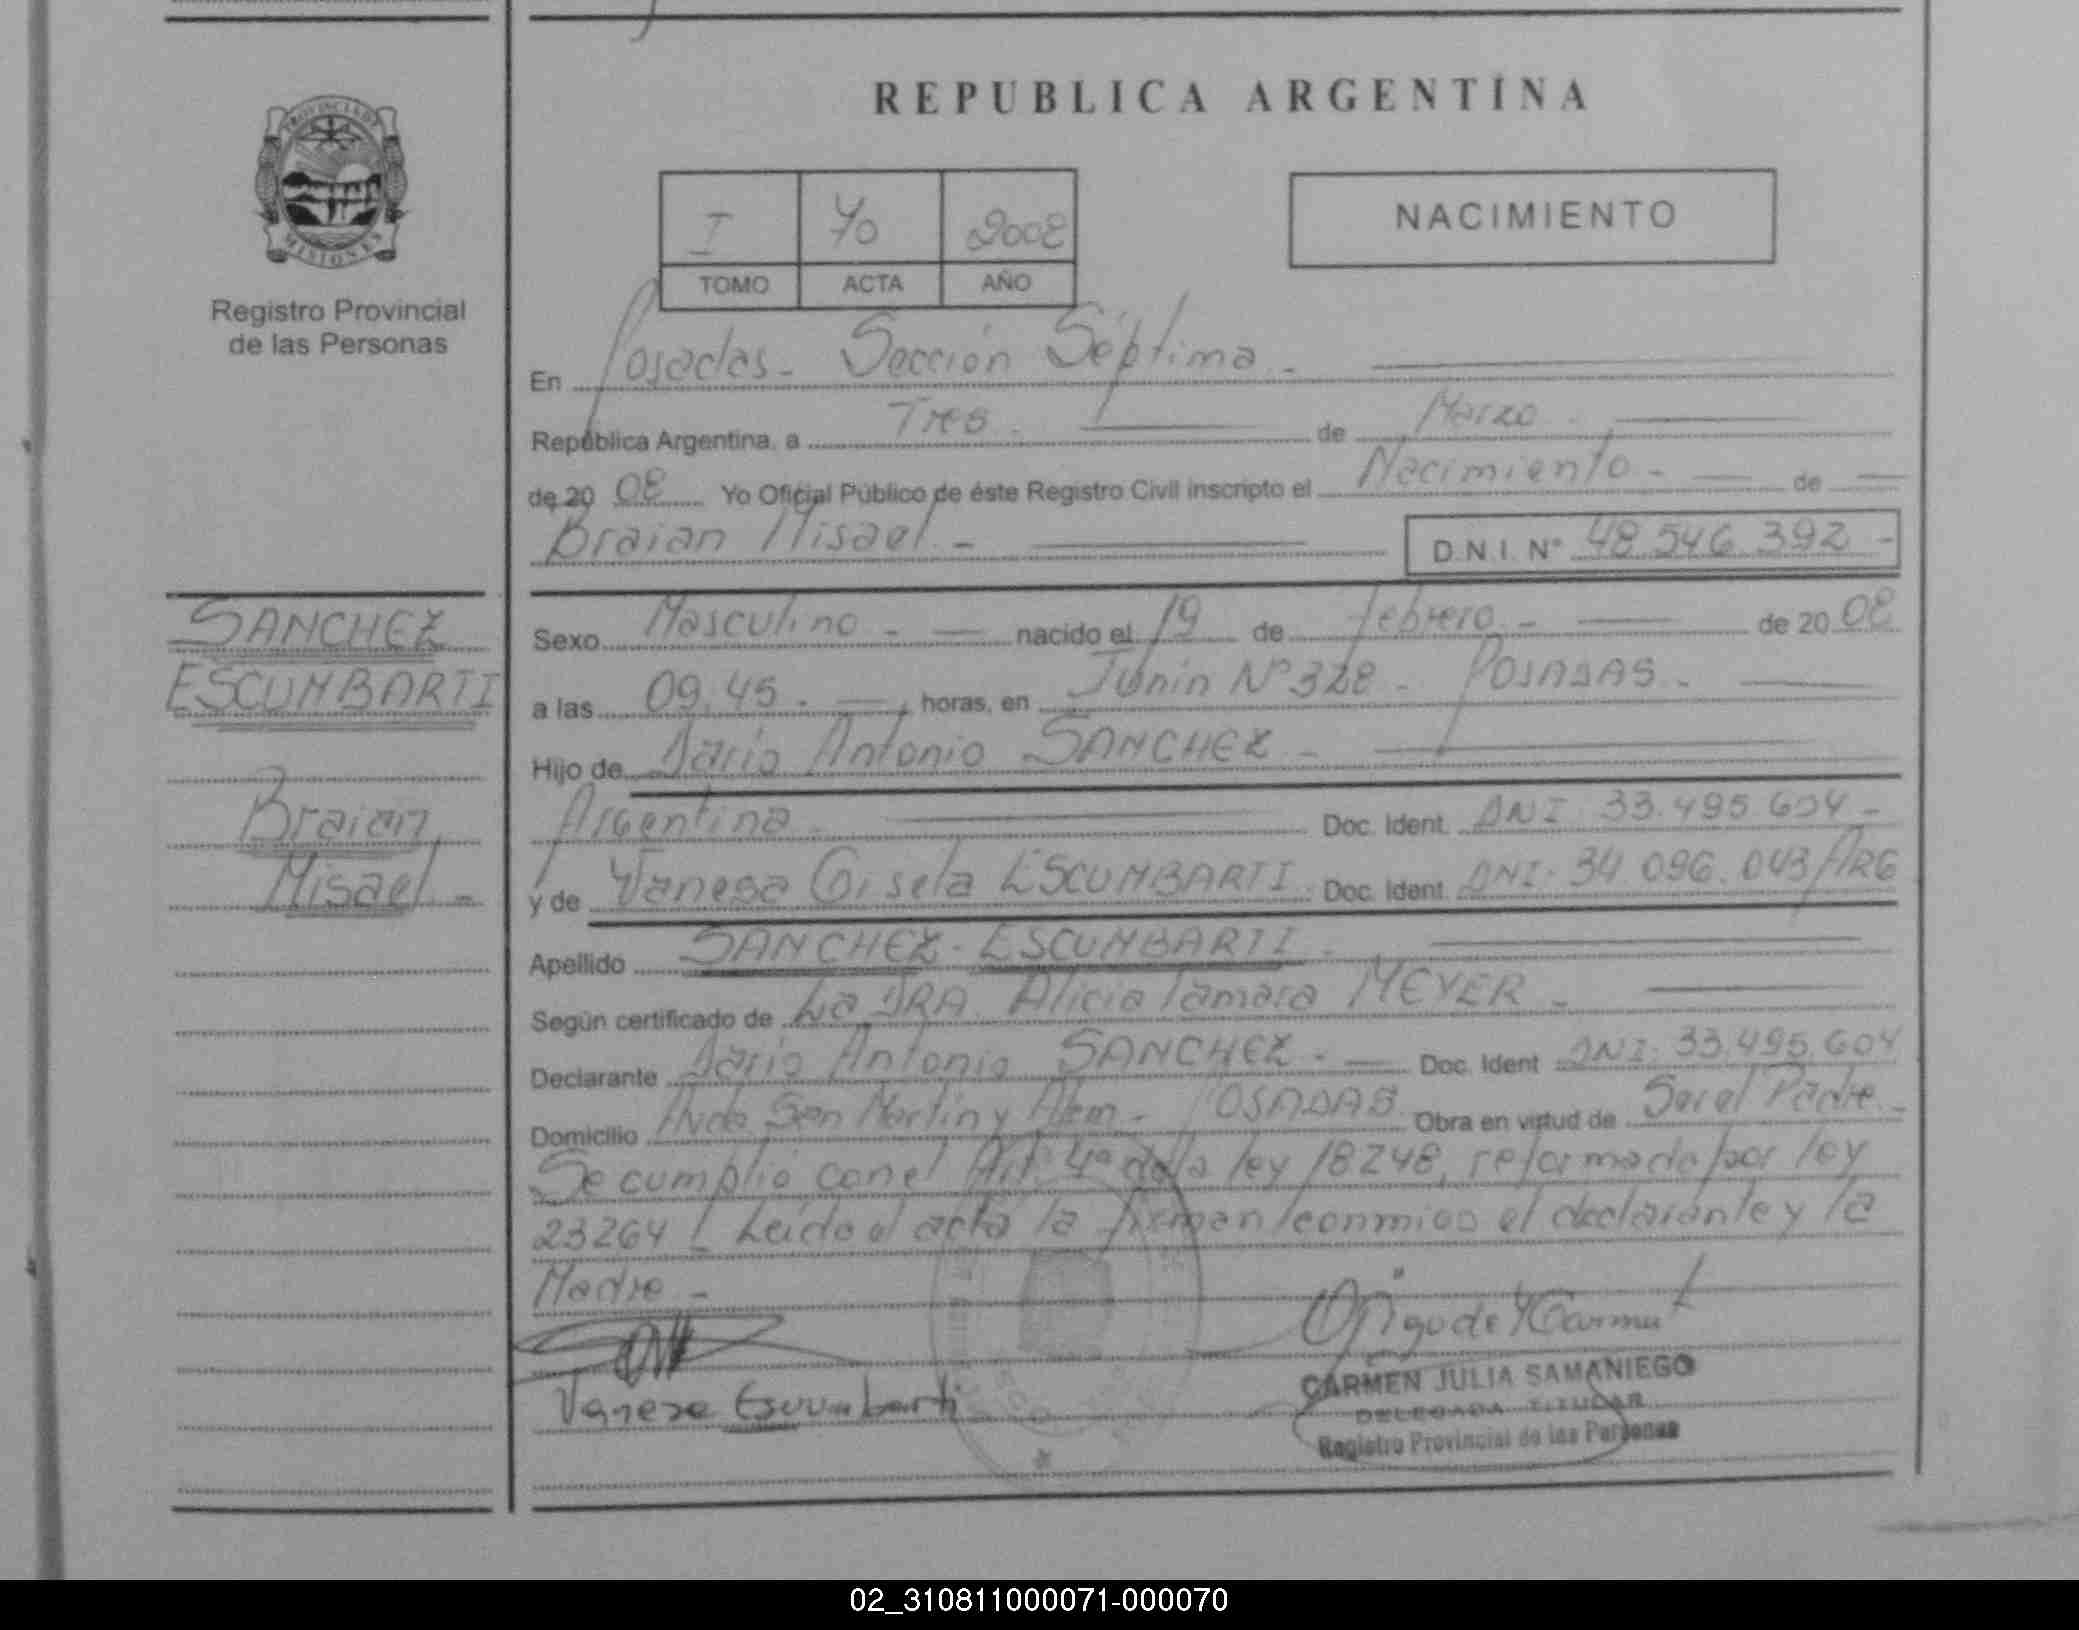 REPUBLICA ARGENTINA
PROVINCIA DE
MISIONES
Registro Provincial
de las Personas
I 70 2008
TOMO ACTA AÑO
NACIMIENTO
En Posadas - Sección Séptima -
República Argentina, a Tres - de Marzo -
de 20 08 Yo Oficial Público de éste Registro Civil inscripto el Nacimiento - de
Braian Misael - D.N.I. Nº 48.546.392 -
SANCHEZ
ESCUMBARTI
Braian
Misael -
Sexo Masculino - nacido el 19 de febrero - de 20 08
a las 09,45 - horas, en Junin Nº 328 - POSADAS -
Hijo de Dario Antonio SANCHEZ -
Argentina - Doc. Ident. DNI 33.495.604 -
y de Vanesa Gisela ESCUMBARTI Doc. Ident. DNI: 34 096.043/ARG
Apellido SANCHEZ - ESCUMBARTI -
Según certificado de La DRA. Alicia Tamara MEYER -
Declarante Dario Antonio SANCHEZ - Doc. Ident DNI: 33.495.604
Domicilio Avda San Martin y Alem - POSADAS Obra en virtud de Ser el Padre -
Se cumplió con el Art. 4º de la ley 18248, reformada por ley
23264 / Leída el acta la firman conmigo el declarante y la
Madre -
Vanesa Escumbarti
CARMEN JULIA SAMANIEGO
DELEGADA TITULAR
Registro Provincial de las Personas
02_310811000071-000070